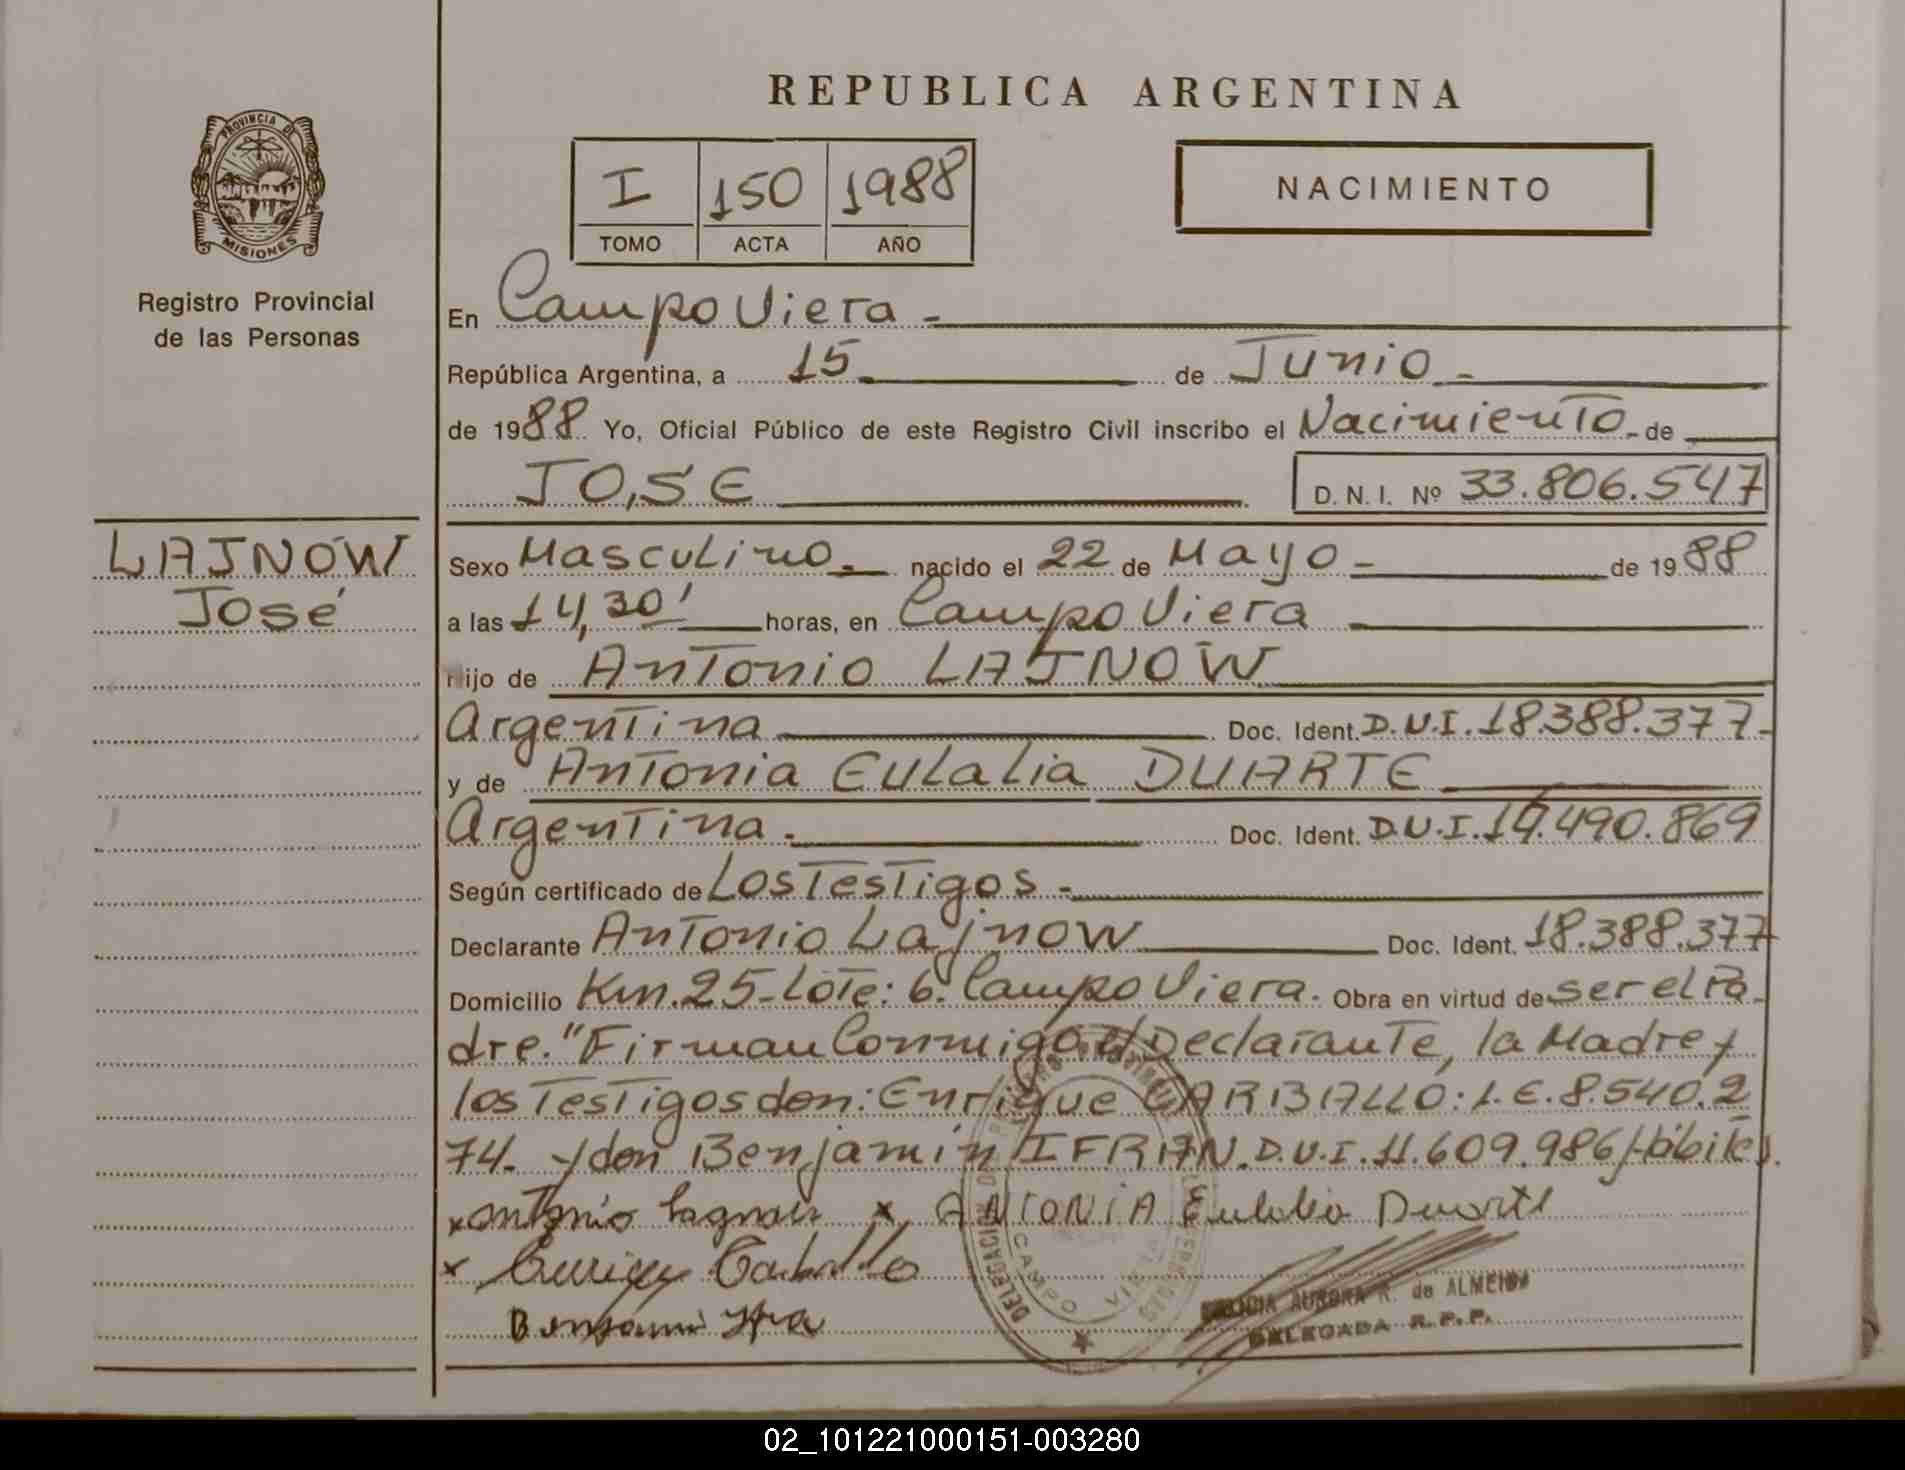 REPUBLICA ARGENTINA
PROVINCIA DE MISIONES
Registro Provincial
de las Personas
I 150 1988
TOMO ACTA AÑO
NACIMIENTO
En Campo Viera -
República Argentina, a 15 de Junio -
de 1988 Yo, Oficial Público de este Registro Civil inscribo el Nacimiento - de
JOSE D. N. I. Nº 33.806.547
LAJNOW
José
Sexo Masculino.- nacido el 22 de Mayo - de 1988
a las 14,30' horas, en Campo Viera
hijo de Antonio LAJNOW
Argentina Doc. Ident. D.N.I. 18.388.377-
y de Antonia Eulalia DUARTE
Argentina. Doc. Ident. D.N.I. .490.869
Según certificado de Los Testigos -
Declarante Antonio Lajnow Doc. Ident. 18.388.377
Domicilio Km. 25-Lote: 6. Campo Viera. Obra en virtud de ser el Pa
dre. "Firman Conmigo el Declarante, la Madre y
los Testigos don: Enrique CARBALLO: L.E. 8.540.2
74. y don Benjamín IFRAN. D.N.I. 11.609.986 Hábiles.
x Antonio x ANTONIA Eulalia Duarte
x
Benjamin
CAMPO VIERA
AURORA R. de ALMEIDA
DELEGADA R.P.P.
02_101221000151-003280